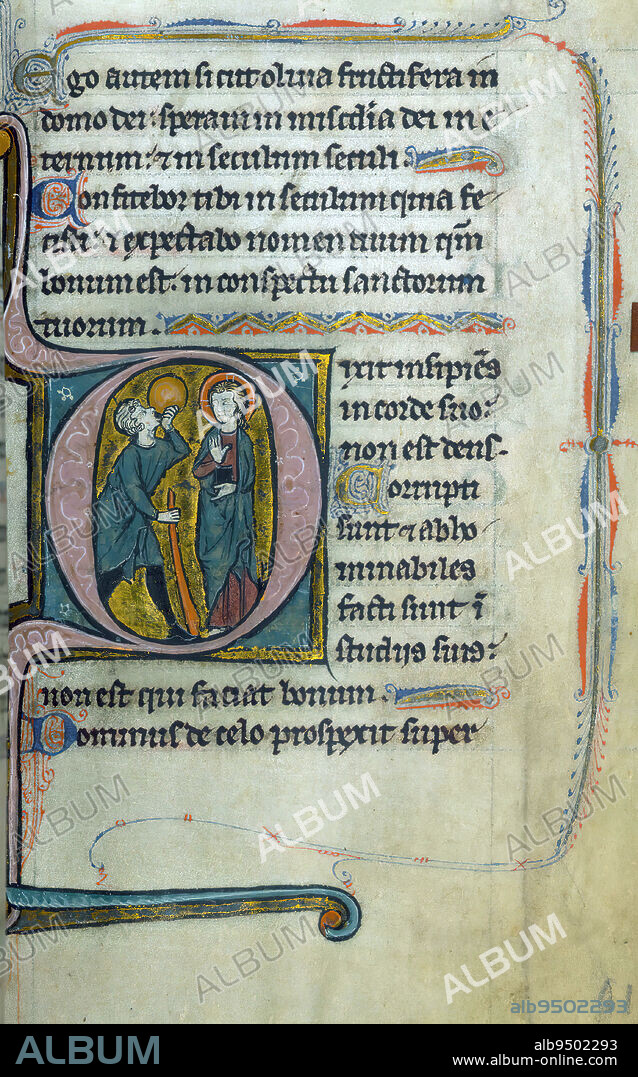 Ego autem sicut oliva fructifera in
domo dei: speravi in mis̅cd̅ia dei in e
ternum: ⁊ in seculum seculi.
Confitebor tibi in seculum quia fe
cisti: ⁊ expectabo nomen tuum qm̅
bonum est. in conspectu sanctorum
tuorum.
Dixit insipie̅s
in corde suo:
non est deus.
Corrupti
sunt ⁊ abho
minabiles
facti sunt i̅
studiis suis:
non est qui faciat bonum.
Dominus de celo prospexit super
ALBUM
alb9502293
ALBUM
alb9502293
www.album-online.com